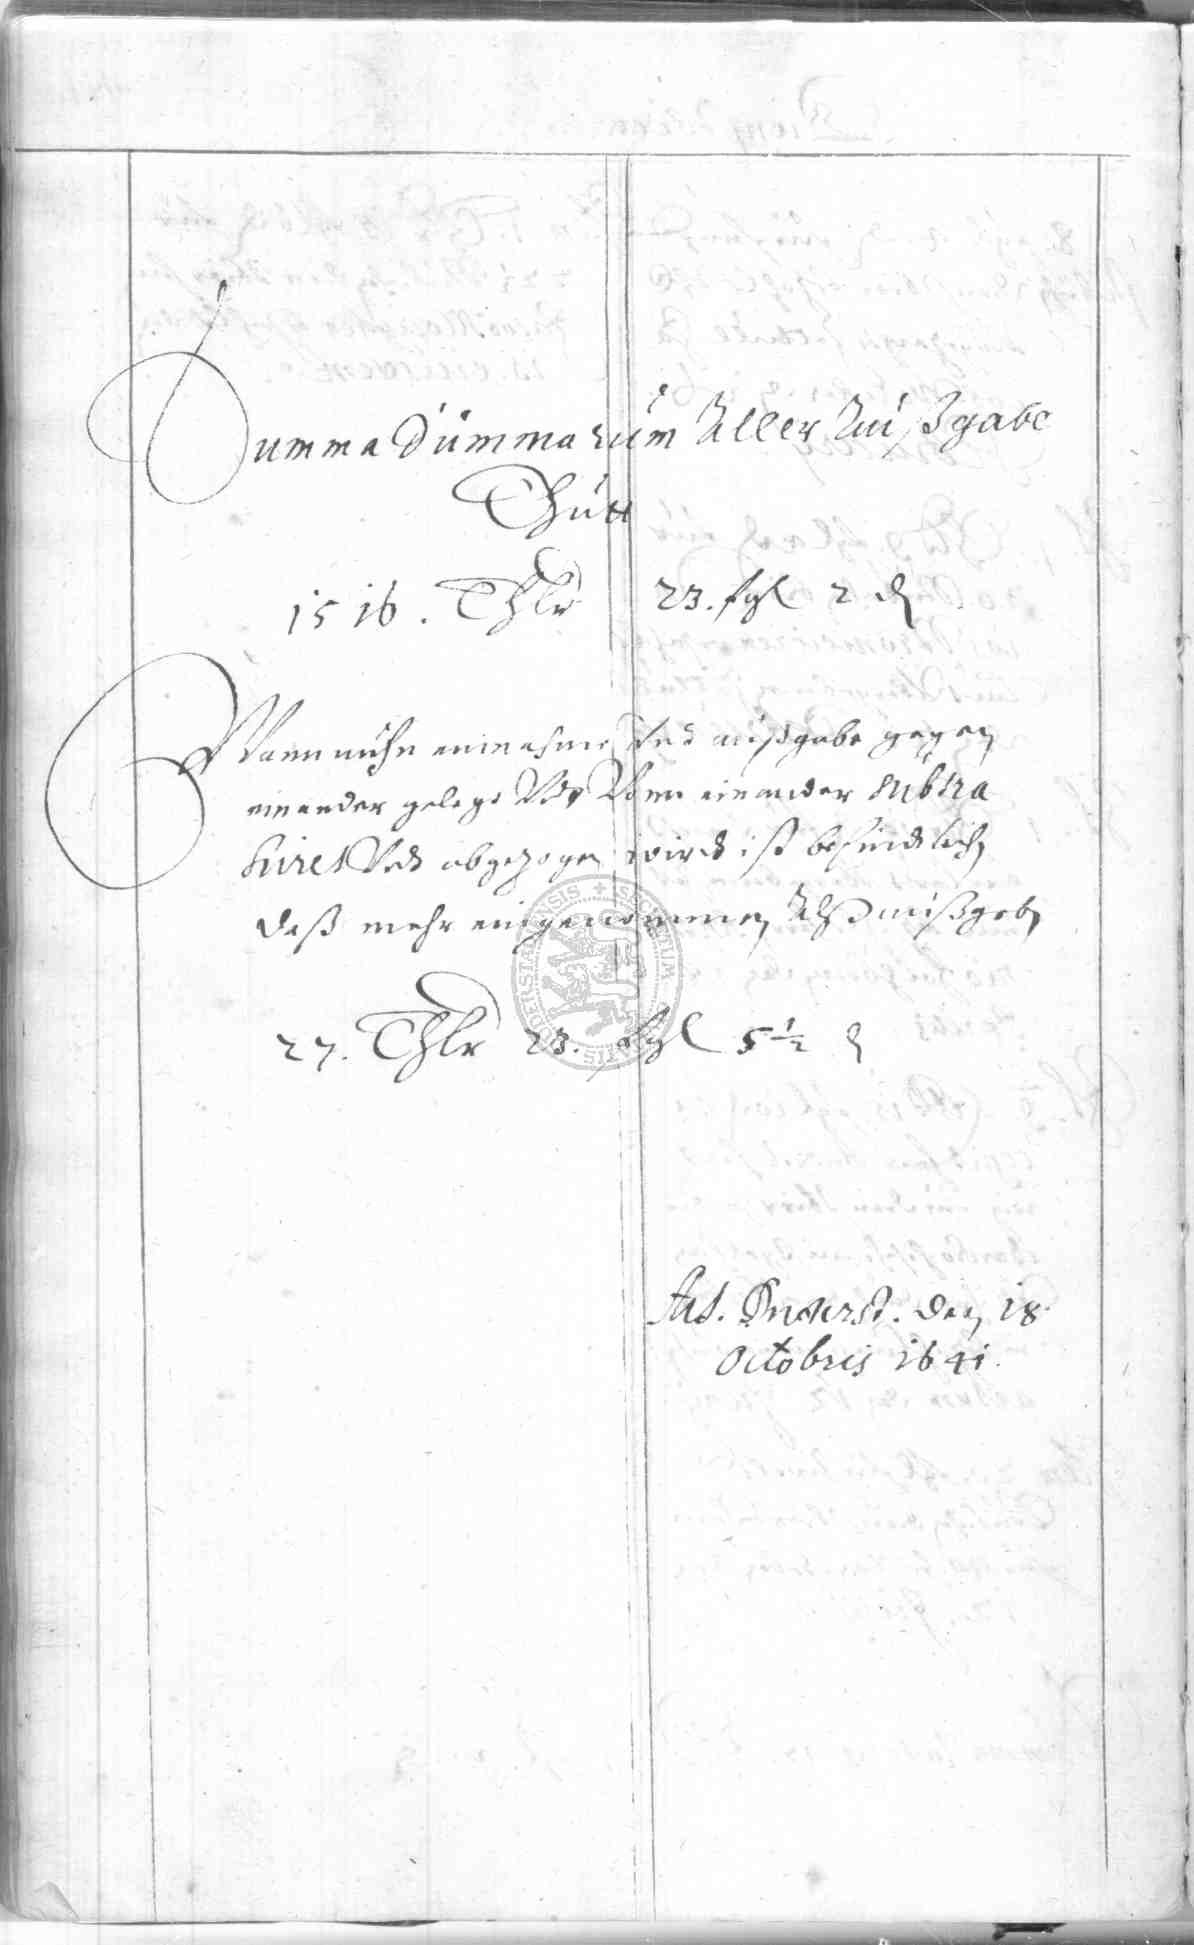 Summa Summarum Aller Außgabe
Thutt
1516. Thlr 23. sgl 2 ₰
Wann nuhn einnahme Vnd außgabe gegen
einander gelegt Vnd Vonn einander subtra
hiret Vnd abgezogen wird ist befindtlich
daß mehr eingenommen Alß außgeben
27. Thlr 23. sgl 5 ½ ₰
den 18
Octobris 1641.
SIGILLUM